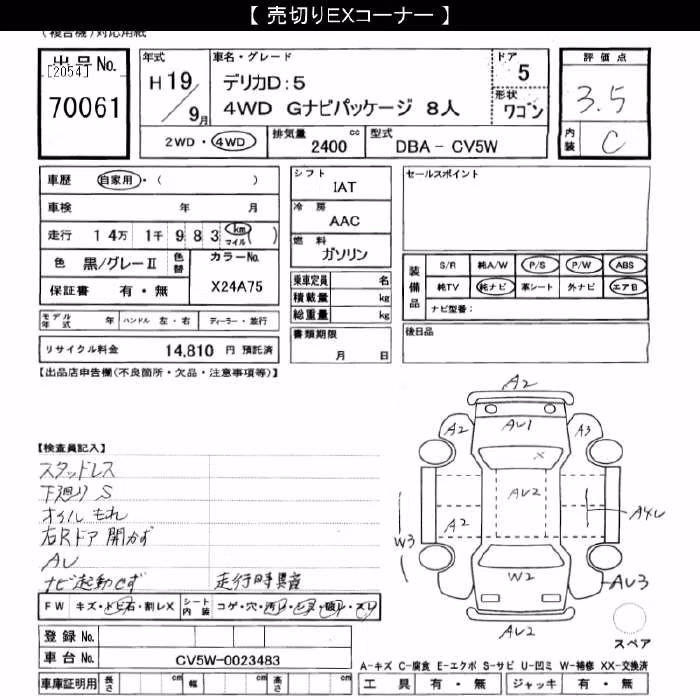 【 売切りEXコーナー 】
(複合機)対応用紙
出品 No.
[2054]
70061
年式
H 19/9月
車名・グレード
デリカD:5
4WD Gナビパッケージ 8人
ドア
5
形状
ワゴン
2WD・4WD
排気量
2400 cc
型式
DBA - CV5W
評価点
3.5
内装
C
車歴 自家用・( )
車検 年 月
走行 14万 1千 983 km マイル ( )
色 黒/グレーⅡ 色替
カラーNo.
X24A75
保証書 有・無
モデル年式 年 ハンドル 左・右 ディーラー・並行
リサイクル料金 14,810 円 預託済
シフト
IAT
冷房
AAC
燃料
ガソリン
乗車定員 名
積載量 kg
総重量 kg
書類期限
月 日
セールスポイント
装備品
S/R 純A/W P/S P/W ABS
純TV 純ナビ 革シート 外ナビ エアB
ナビ型番:
後日品
【出品店申告欄(不良箇所・欠品・注意事項等)】
【検査員記入】
スタッドレス
下廻り S
オイルもれ
右Rドア 開かず
AU
ナビ起動せず 走行時異音
FW キズ・トビ石・割レX シート内装 コゲ・穴・汚レ・シミ・破レ・スレ
登録 No.
車台 No. CV5W-0023483
車庫証明用 長さ cm 幅 cm 高さ cm
A2
A2
AU1
A3
X
AU2
A2
A4U
W3
W2
AU3
AU2
スペア
A-キズ C-腐食 E-エクボ S-サビ U-凹ミ W-補修 XX-交換済
工具 有・無 ジャッキ 有・無